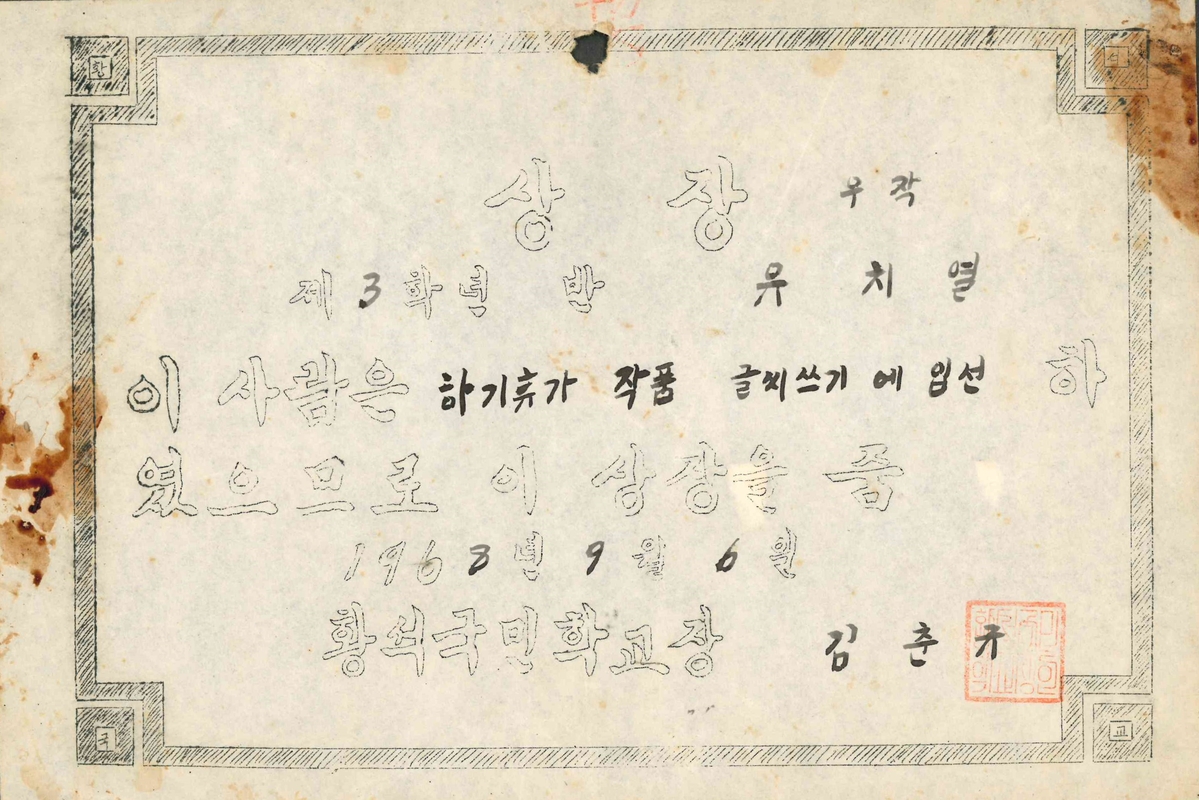 황
석
상 장 우작
제 3 학년 반 유 치 열
이 사람은 하기휴가 작품 글씨쓰기 에 입선 하
였으므로 이 상장을 줌
1968년 9월 6일
황석국민학교장 김 춘 규
국
교